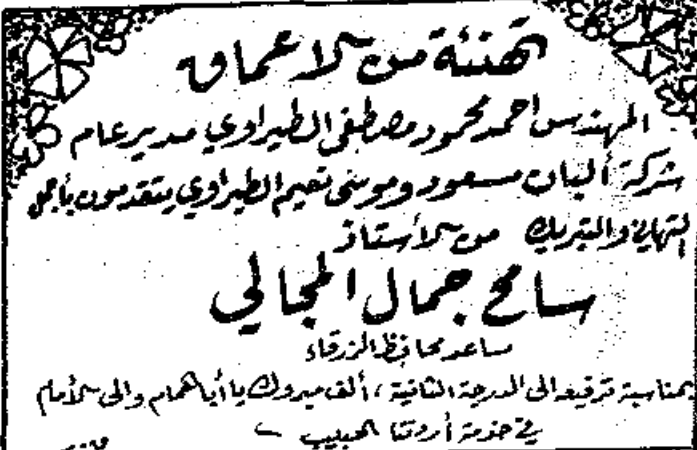 تهنئة من الاعماق
المهندس احمد محمود مصطفى الطيراوي مدير عام
شركة ألبان مسعود وموسى نعيم الطيراوي يتقدمون بأجمل
التهاني والتبريك من الأستاذ
سامح جمال المجالي
مساعد محافظ الزرقاء
بمناسبة ترقيعه الى الدرجة الثانية ، ألف مبروك يا أبا همام والى الأمام
في خدمة أردننا الحبيب